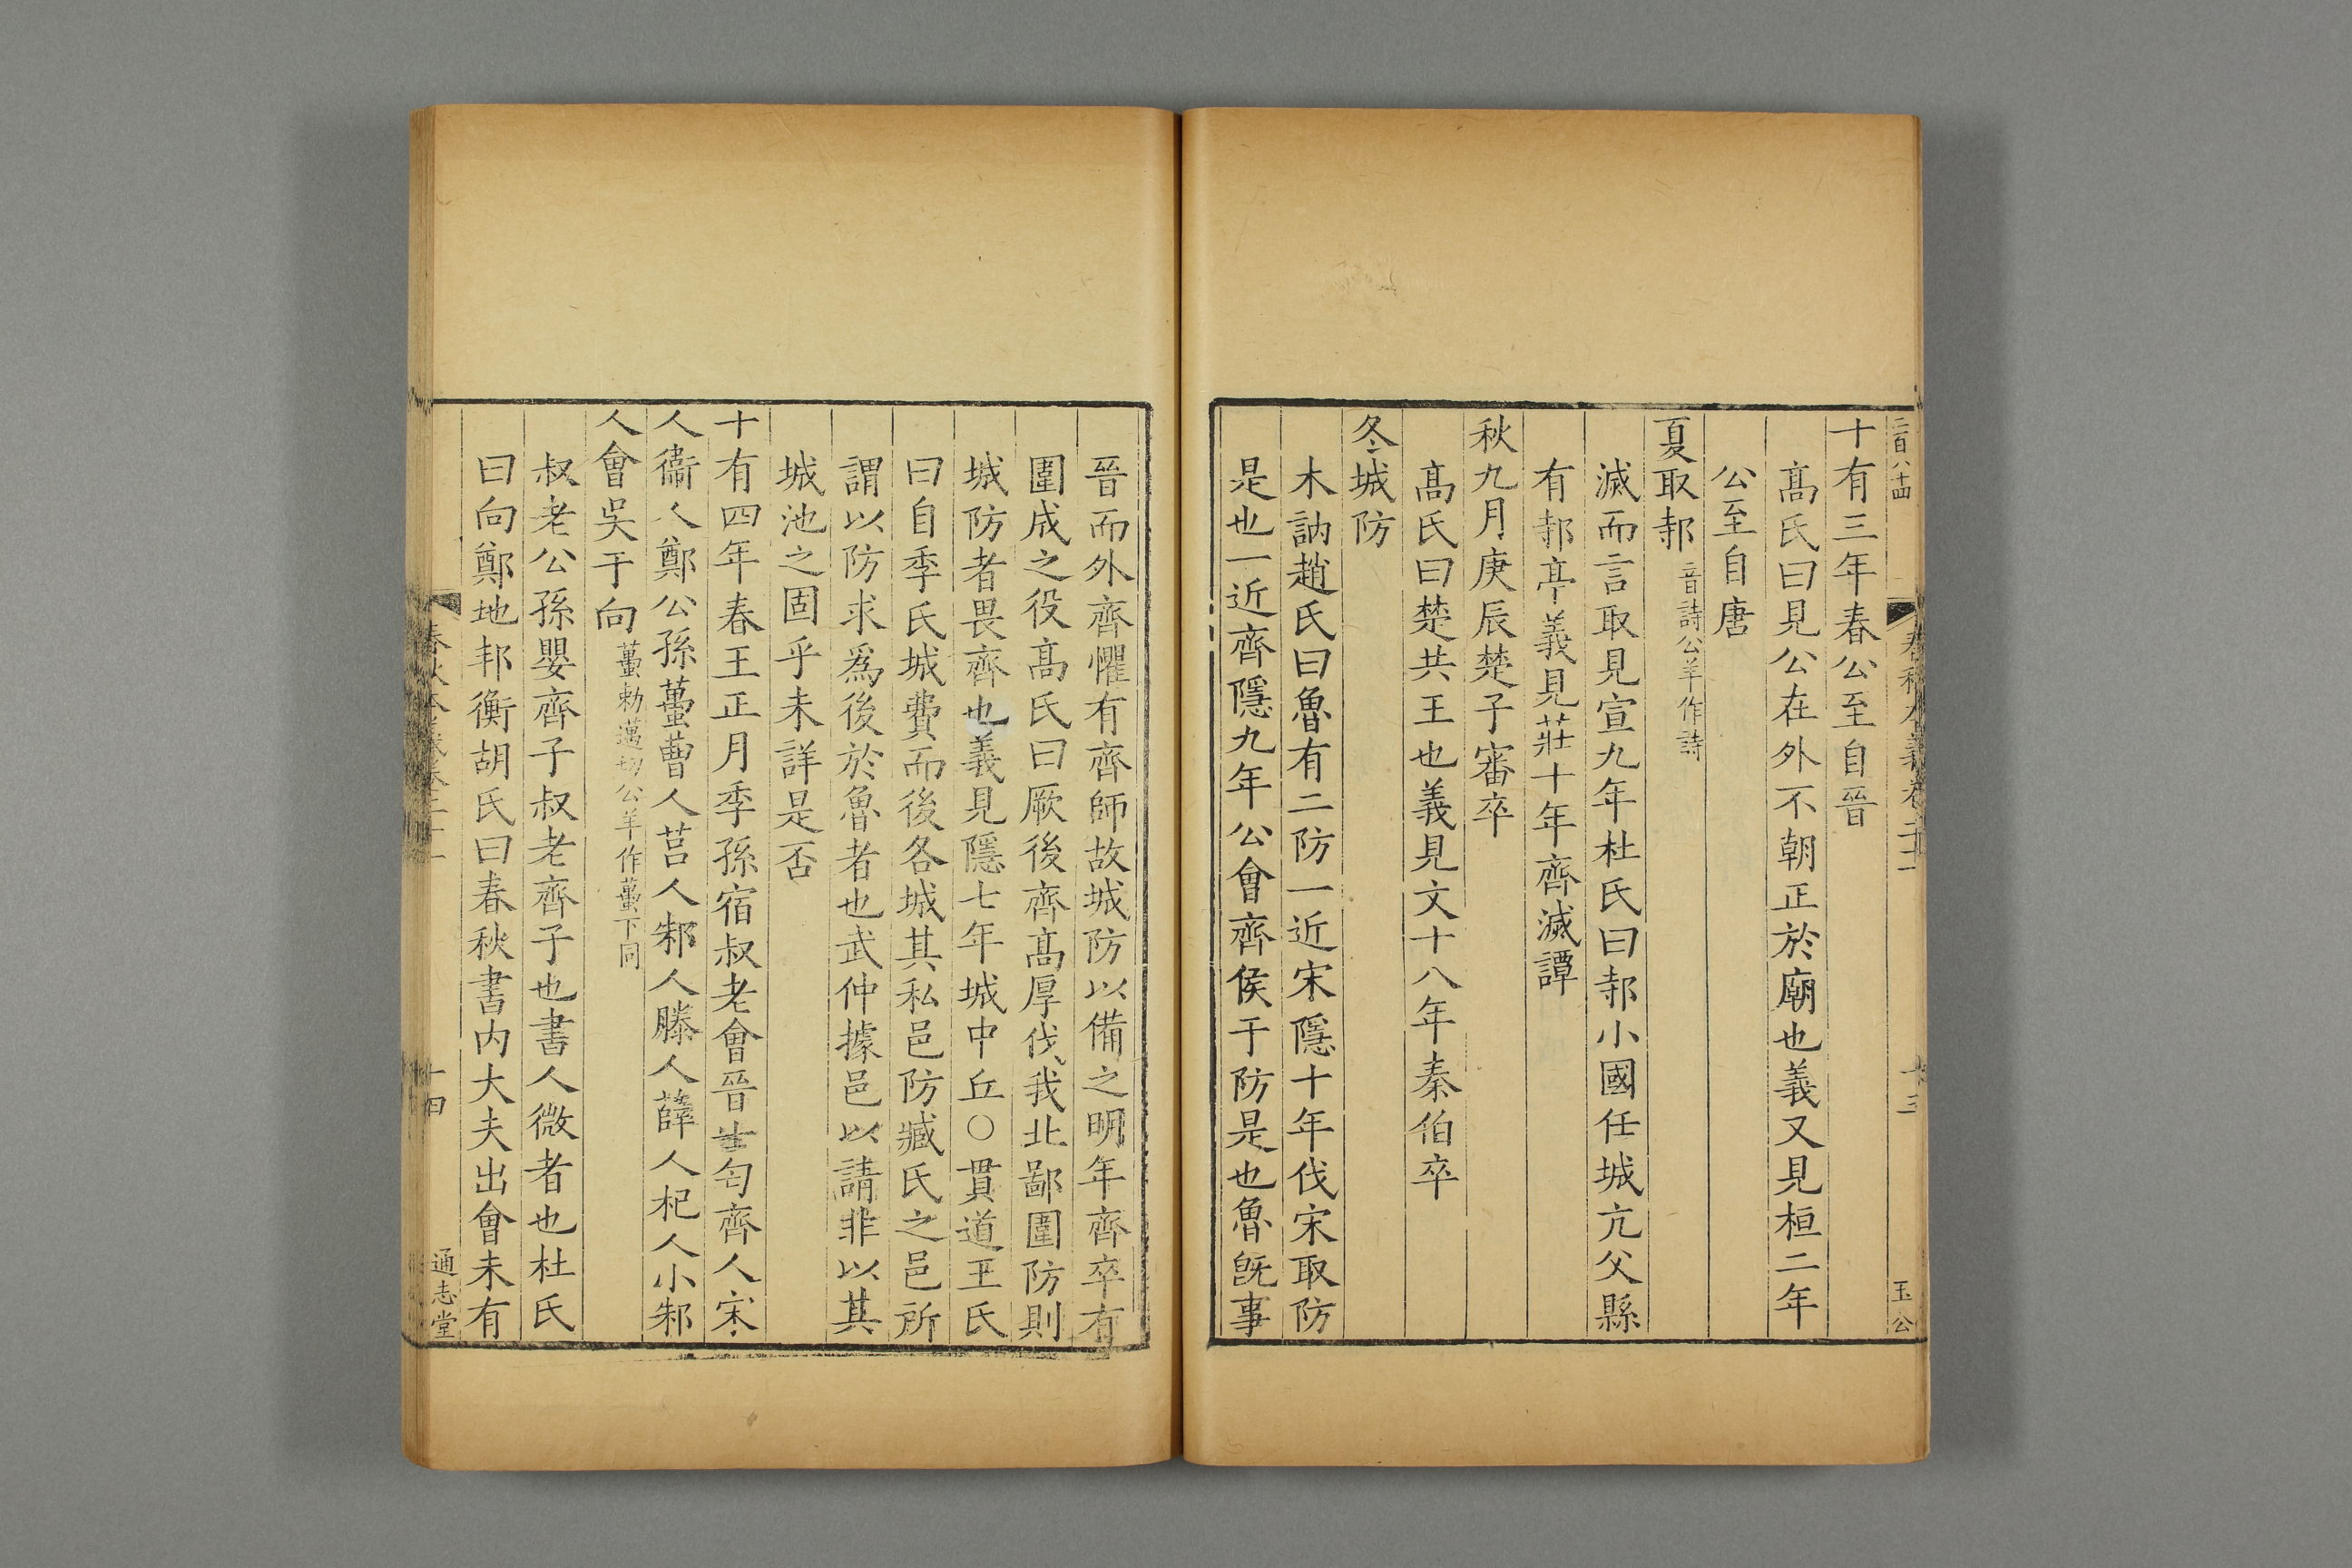 二百八十四
春秋本義卷二十一
十三
玉公
十有三年春公至自晉
髙氏曰見公在外不朝正於廟也義又見桓二年
公至自唐
夏取邿音詩公羊作詩
滅而言取見宣九年杜氏曰邿小國任城亢父縣
有邿亭義見莊十年齊滅譚
秋九月庚辰楚子審卒
髙氏曰楚共王也義見文十八年秦伯卒
冬城防
木訥趙氏曰魯有二防一近宋隱十年伐宋取防
是也一近齊隱九年公會齊侯于防是也魯旣事
晉而外齊懼有齊師故城防以備之明年齊卒有
圍成之役髙氏曰厥後齊髙厚伐我北鄙圍防則
城防者畏齊也義見隱七年城中丘○貫道王氏
曰自季氏城費而後各城其私邑防臧氏之邑所
謂以防求爲後於魯者也武仲據邑以請非以其
城池之固乎未詳是否
十有四年春王正月季孫宿叔老會晉士匄齊人宋
人衞人鄭公孫蠆曹人莒人邾人滕人薛人杞人小邾
人會吳于向蠆勑邁切公羊作蠆下同
叔老公孫嬰齊子叔老齊子也書人微者也杜氏
曰向鄭地邦衡胡氏曰春秋書内大夫出會未有
春秋本義卷二十一
十四
通志堂